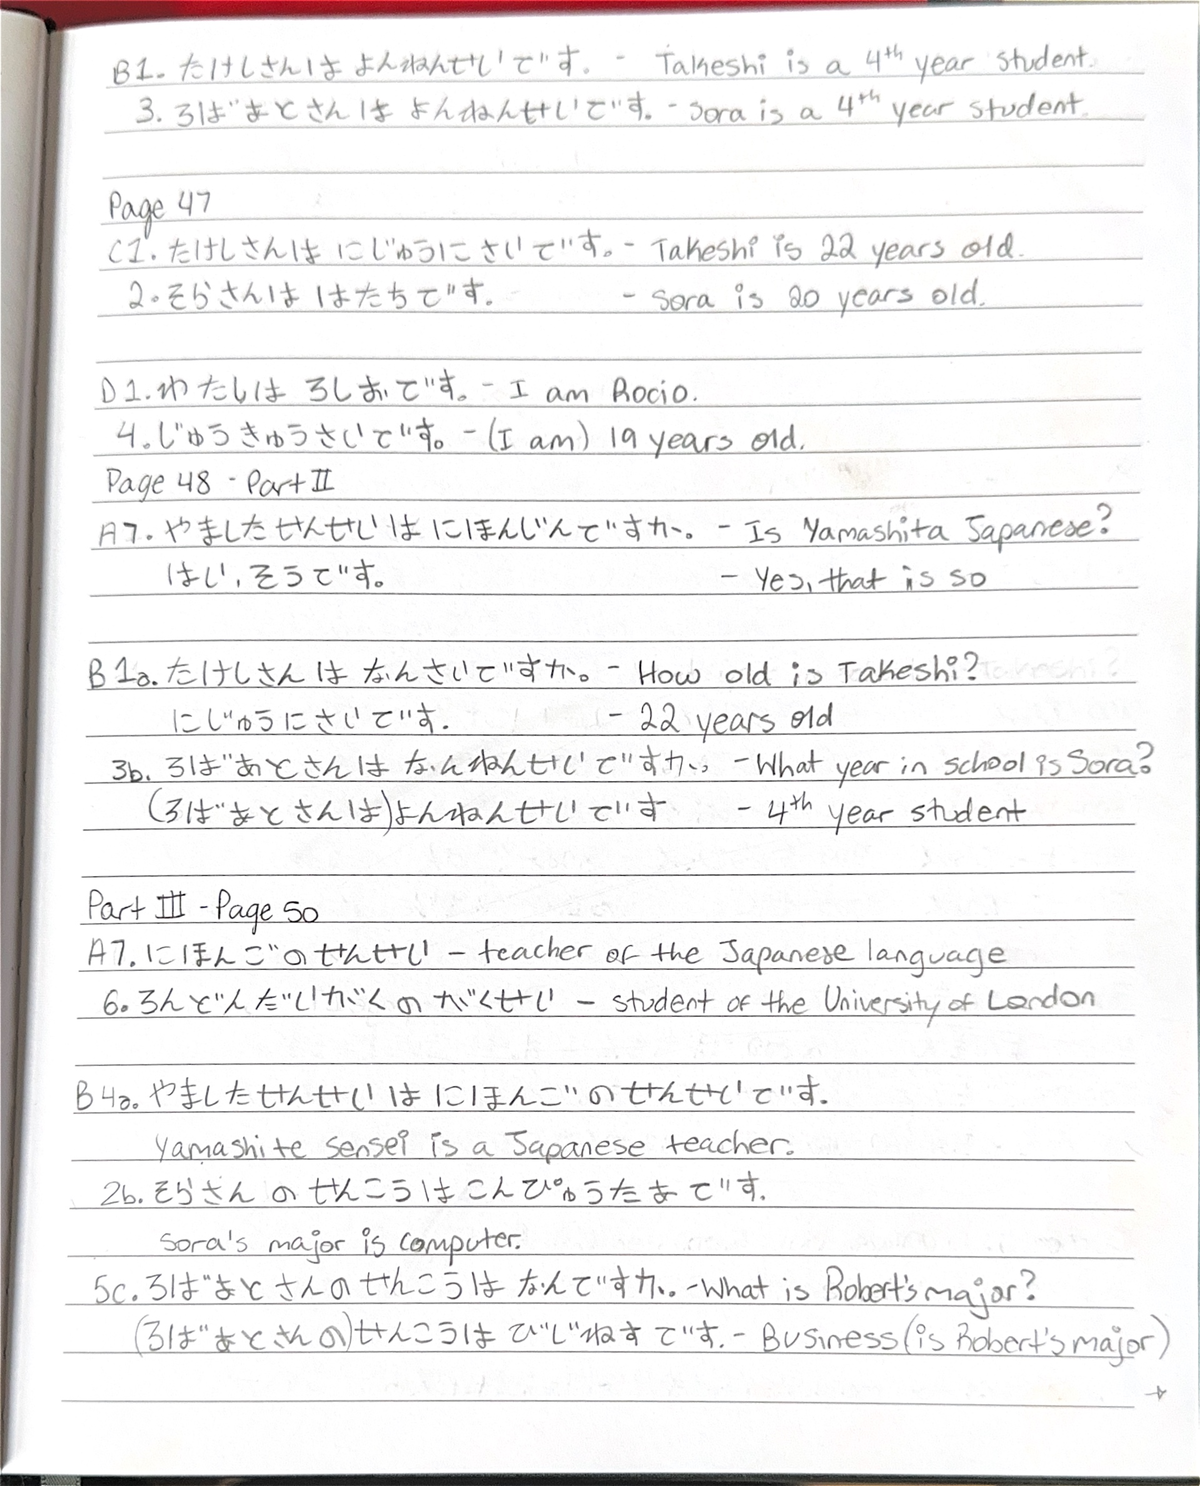 B1. たけしさんは よんねんせいです。 - Takeshi is a 4th year student.
3. ろばあとさんは よんねんせいです。 - Sora is a 4th year student.
Page 47
C1. たけしさんは にじゅうにさいです。 - Takeshi is 22 years old.
2. そらさんは はたちです。 - Sora is 20 years old.
D1. わたしは ろしおです。 - I am Rocio.
4. じゅうきゅうさいです。 - (I am) 19 years old.
Page 48 - Part II
A7. やましたせんせいは にほんじんですか。 - Is Yamashita Japanese?
はい、そうです。 - Yes, that is so
B1a. たけしさんは なんさいですか。 - How old is Takeshi?
にじゅうにさいです。 - 22 years old
3b. ろばあとさんは なんねんせいですか。 - What year in school is Sora?
(ろばあとさんは)よんねんせいです - 4th year student
Part III - Page 50
A7. にほんごのせんせい - teacher of the Japanese language
6. ろんどんだいがくの がくせい - student of the University of London
B4a. やましたせんせいは にほんごのせんせいです.
Yamashite sensei is a Japanese teacher.
2b. そらさんのせんこうはこんぴゅうたあです.
Sora's major is computer.
5c. ろばあとさんのせんこうは なんですか。 - What is Robert's major?
(ろばあとさんの)せんこうは びじねすです. - Business (is Robert's major)